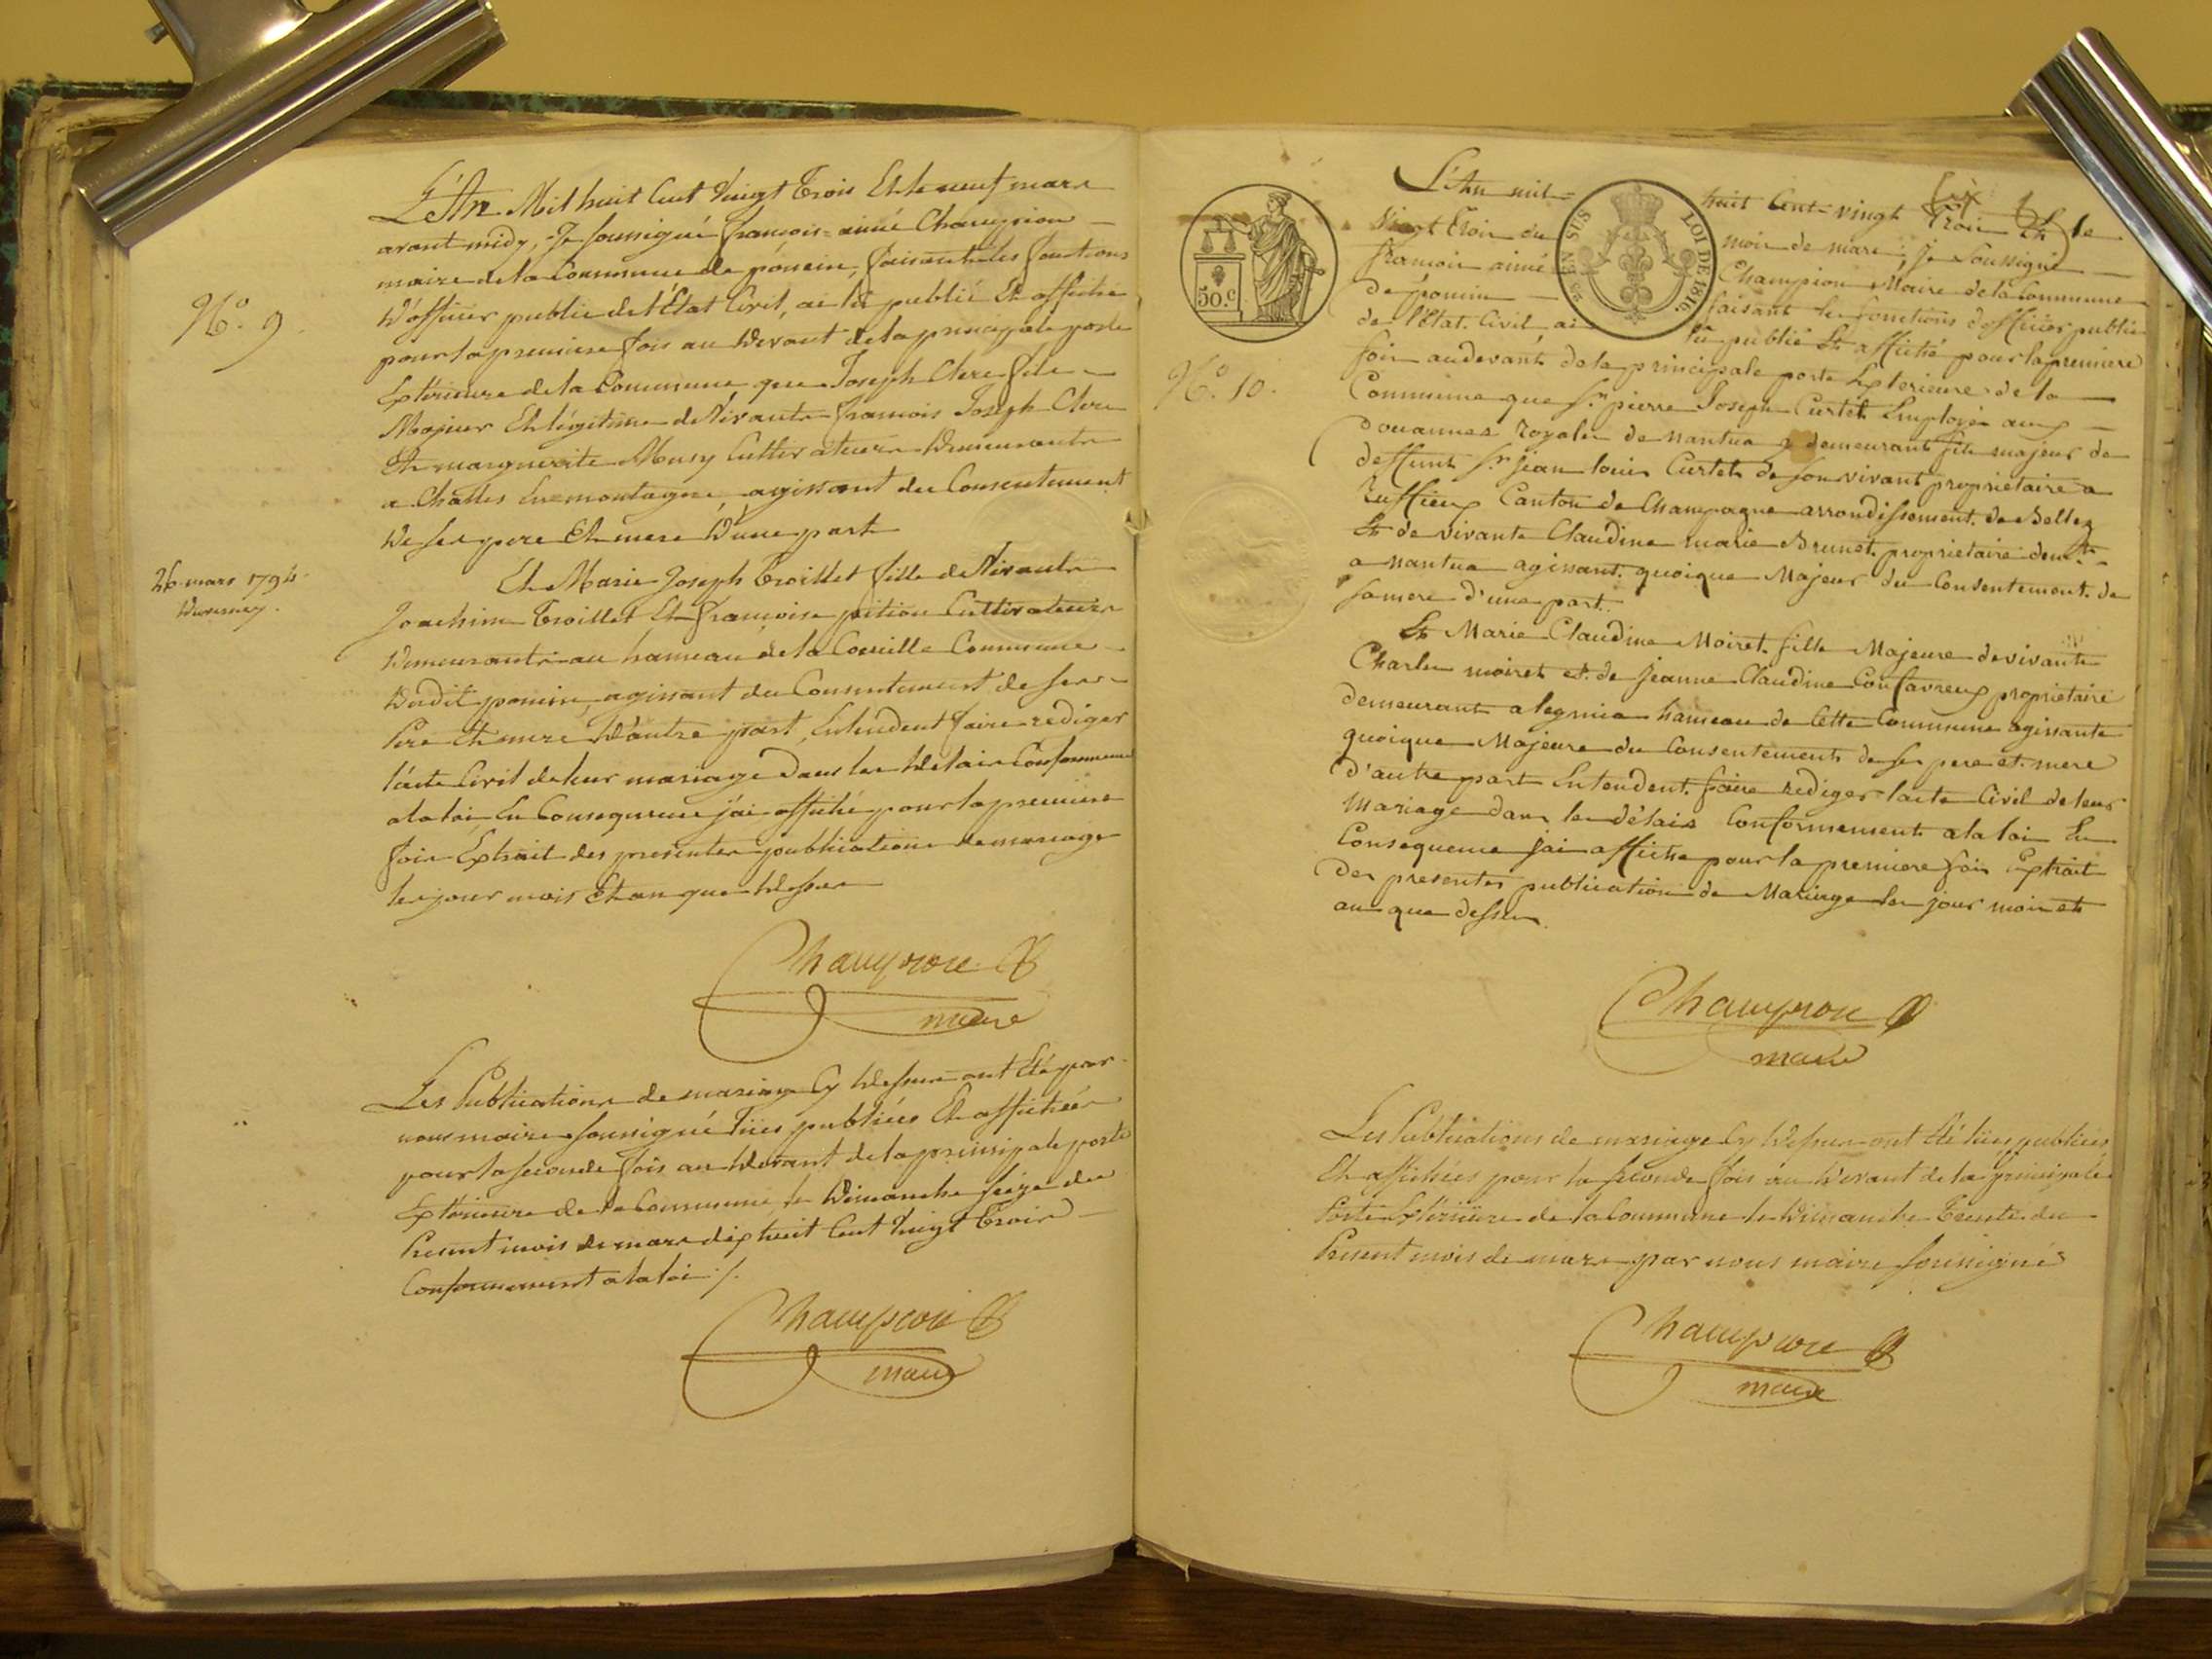 L'An Mil huit Cent Vingt Trois Et le neuf mars
avant midy, Je soussigné françois-aimé Champion
maire de la Commune de poncin, faisant les fonctions
d'officier public de l'Etat Civil, ai lû publié Et affiché
pour la premiere fois au devant de la principale porte
Extérieure de la Commune que Joseph Clerc fils
Majeur Et légitime de Vivants françois Joseph Clerc
Et marguerite Musy Cultivateurs demeurants
a Challes Lamontagne agissant du Consentement
de ses pere Et mere D'une part
Et Marie Joseph Troillet fille de Vivants
Joachim Troillet Et françoise pition Cultivateurs
demeurants au hameau de la Cueille Commune
dudit poncin, agissant du Consentement de ses
Pere Et mere D'autre part, Entendent faire rediger
l'acte Civil de leur mariage dans les delais Conformement
a la loi En Consequence j'ai affiché pour la premiere
fois Extrait des presentes publications de mariage
les jour mois Et an que dessus
Champion
maire
Les Publications de mariage Cy dessus ont Eté par
nous maire soussigné lües publiées Et affichées
pour la seconde fois au devant de la principale porte
Extérieure de la Commune, le Dimanche seize du
Present mois de mars dix huit Cent Vingt Trois
Conformement a la loi ./.
Champion
maire
N.º 9.
26 mars 1794.
50.c
EN SUS
LOI DE 1816
N.º 10.
L'An mil huit Cent vingt Trois Et le
Vingt Trois du mois de mars; je Soussigné
françois aimé Champion Maire de la Commune
de poncin faisant les fonctions d'officier public
de l'Etat Civil, ai lû publié Et affiché pour la premiere
fois au devant de la principale porte Exterieure de la
Commune que S.r pierre Joseph Curtet Employé aux
Douannes Royales de nantua y demeurant fils majeur de
deffunt S.r jean louis Curtet de son vivant propriétaire a
Ruffieux Canton de Champagne arrondissement de Belley
Et de vivante Claudine marie Brunet propriétaire dem.te
a nantua agissant quoique Majeur du Consentement de
sa mere d'une part.
Et Marie Claudine Moiret fille Majeure de vivants
Charles moiret et de jeanne Claudine Confavreux propriétaire
demeurant a legnia hameau de Cette Commune agissante
quoique Majeure du Consentement de ses pere et mere
D'autre part Entendent faire rediger l'acte Civil de leur
Mariage dans les délais Conformement a la loi En
Consequence j'ai affiché pour la premiere fois Extrait
Des presentes publication de Mariage les jour mois et
an que dessus.
Champion
maire
Les Publications de mariage Cy dessus ont Eté lües, publiées
Et affichées pour la seconde fois au devant de la principale
Porte Exterieure de la Commune le Dimanche Trente du
Present mois de mars par nous maire soussigné
Champion
maire